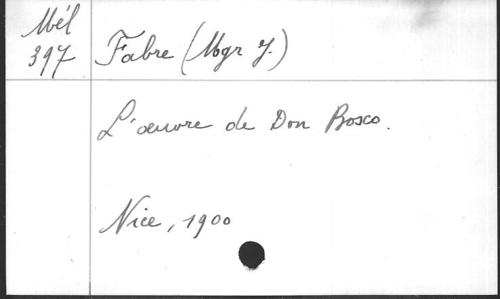 Mél
397
Fabre (Mgr J.)
L'œuvre de Don Bosco.
Nice, 1900